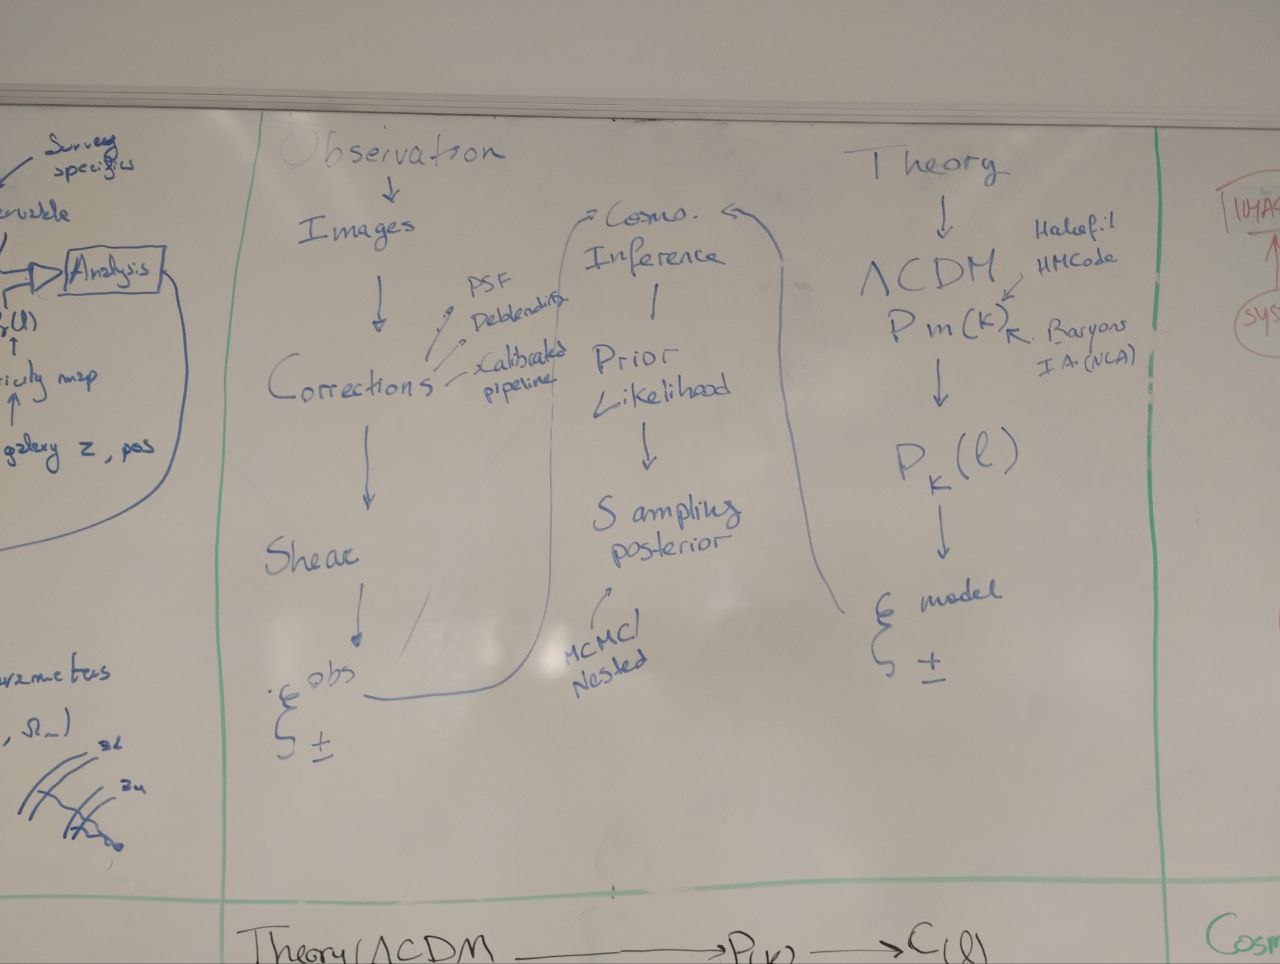 Survey
specifics
Analysis
map
galaxy z, pos
Observation
Images
Corrections
PSF
Deblending
Calibrated
pipeline
Shear
ξ obs
±
Cosmo.
Inference
Prior
Likelihood
Sampling
posterior
MCMC/
Nested
Theory
ΛCDM
Halofit
HMCode
Pm(k)
Baryons
IA (NLA)
Pκ(ℓ)
ξ model
±
Theory(ΛCDM → P(k) → C(ℓ)